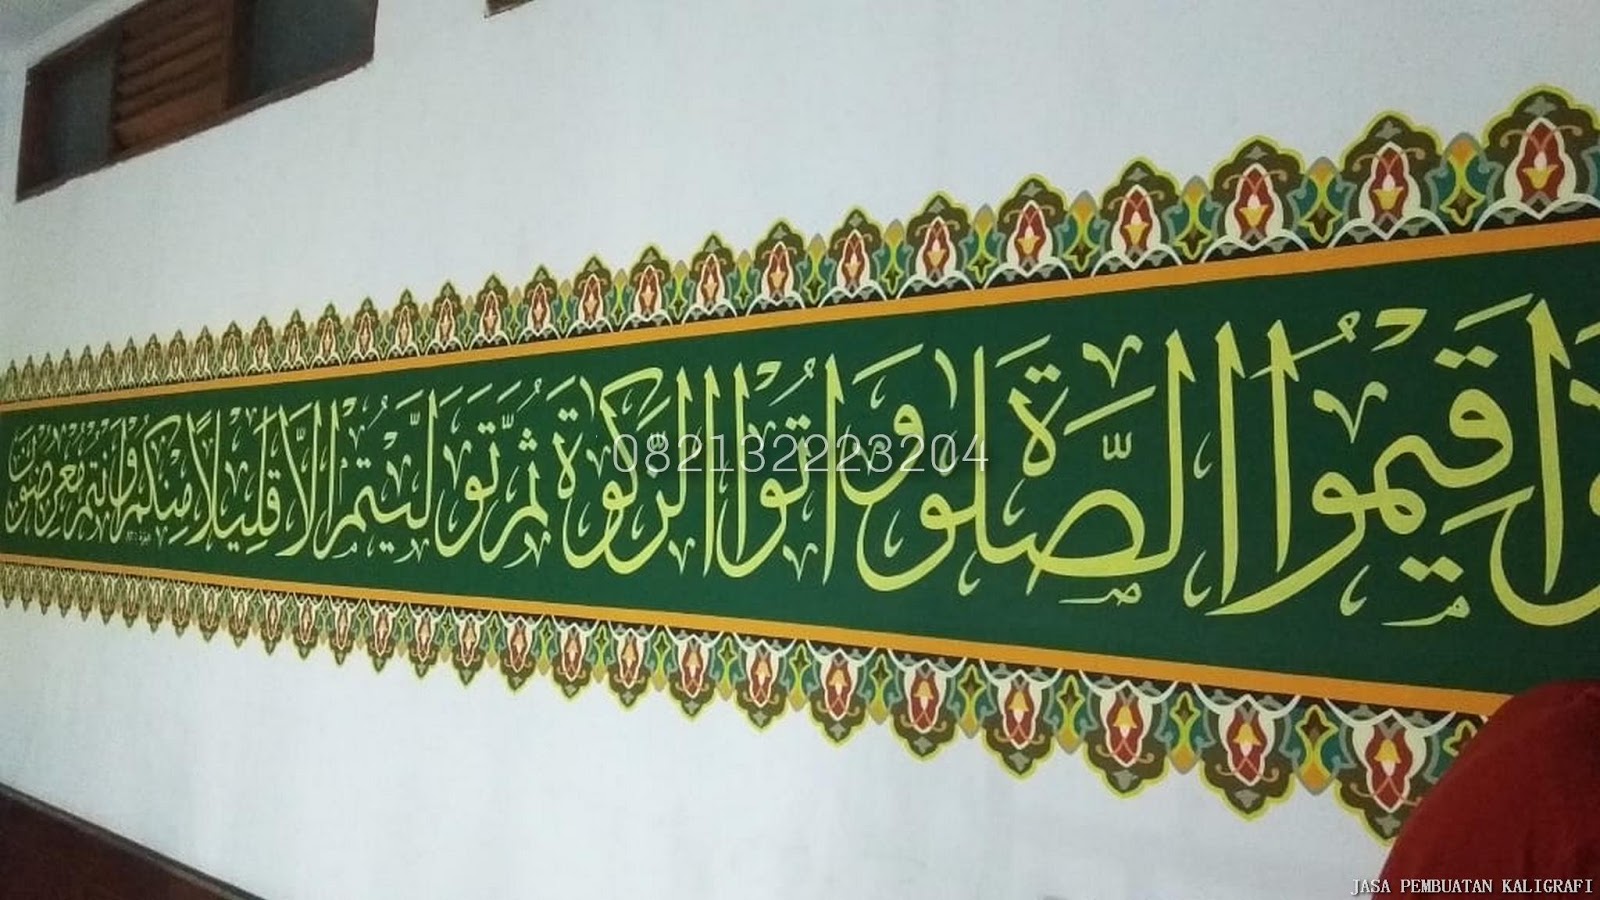 وَأَقِيمُوا الصَّلَوٰةَ وَآتُوا الزَّكَوٰةَ ثُمَّ تَوَلَّيْتُمْ إِلَّا قَلِيلًا مِنْكُمْ وَأَنْتُمْ مُعْرِضُونَ
082132223204
JASA PEMBUATAN KALIGRAFI